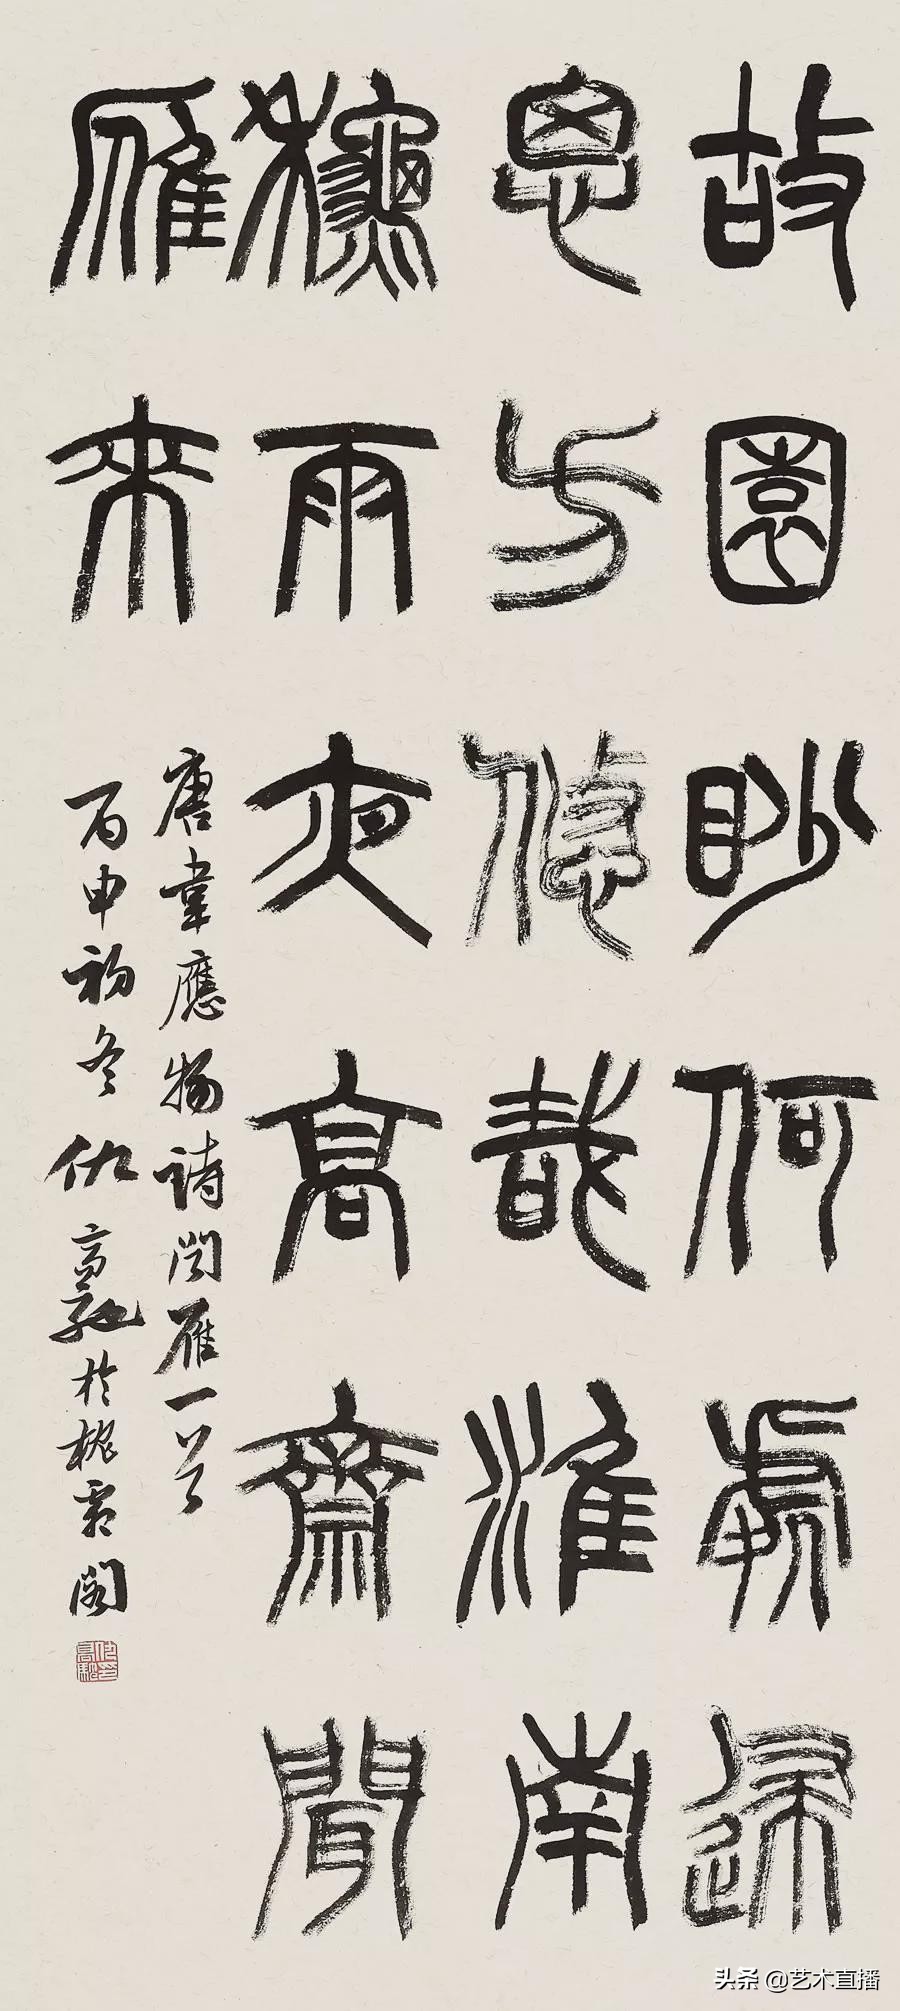 故園眇何處歸
思方悠哉淮南
龝雨夜高齋聞
雁來
唐韋應物詩聞雁一首
丙申初冬仇高馳於槐閣
头条 @艺术直播